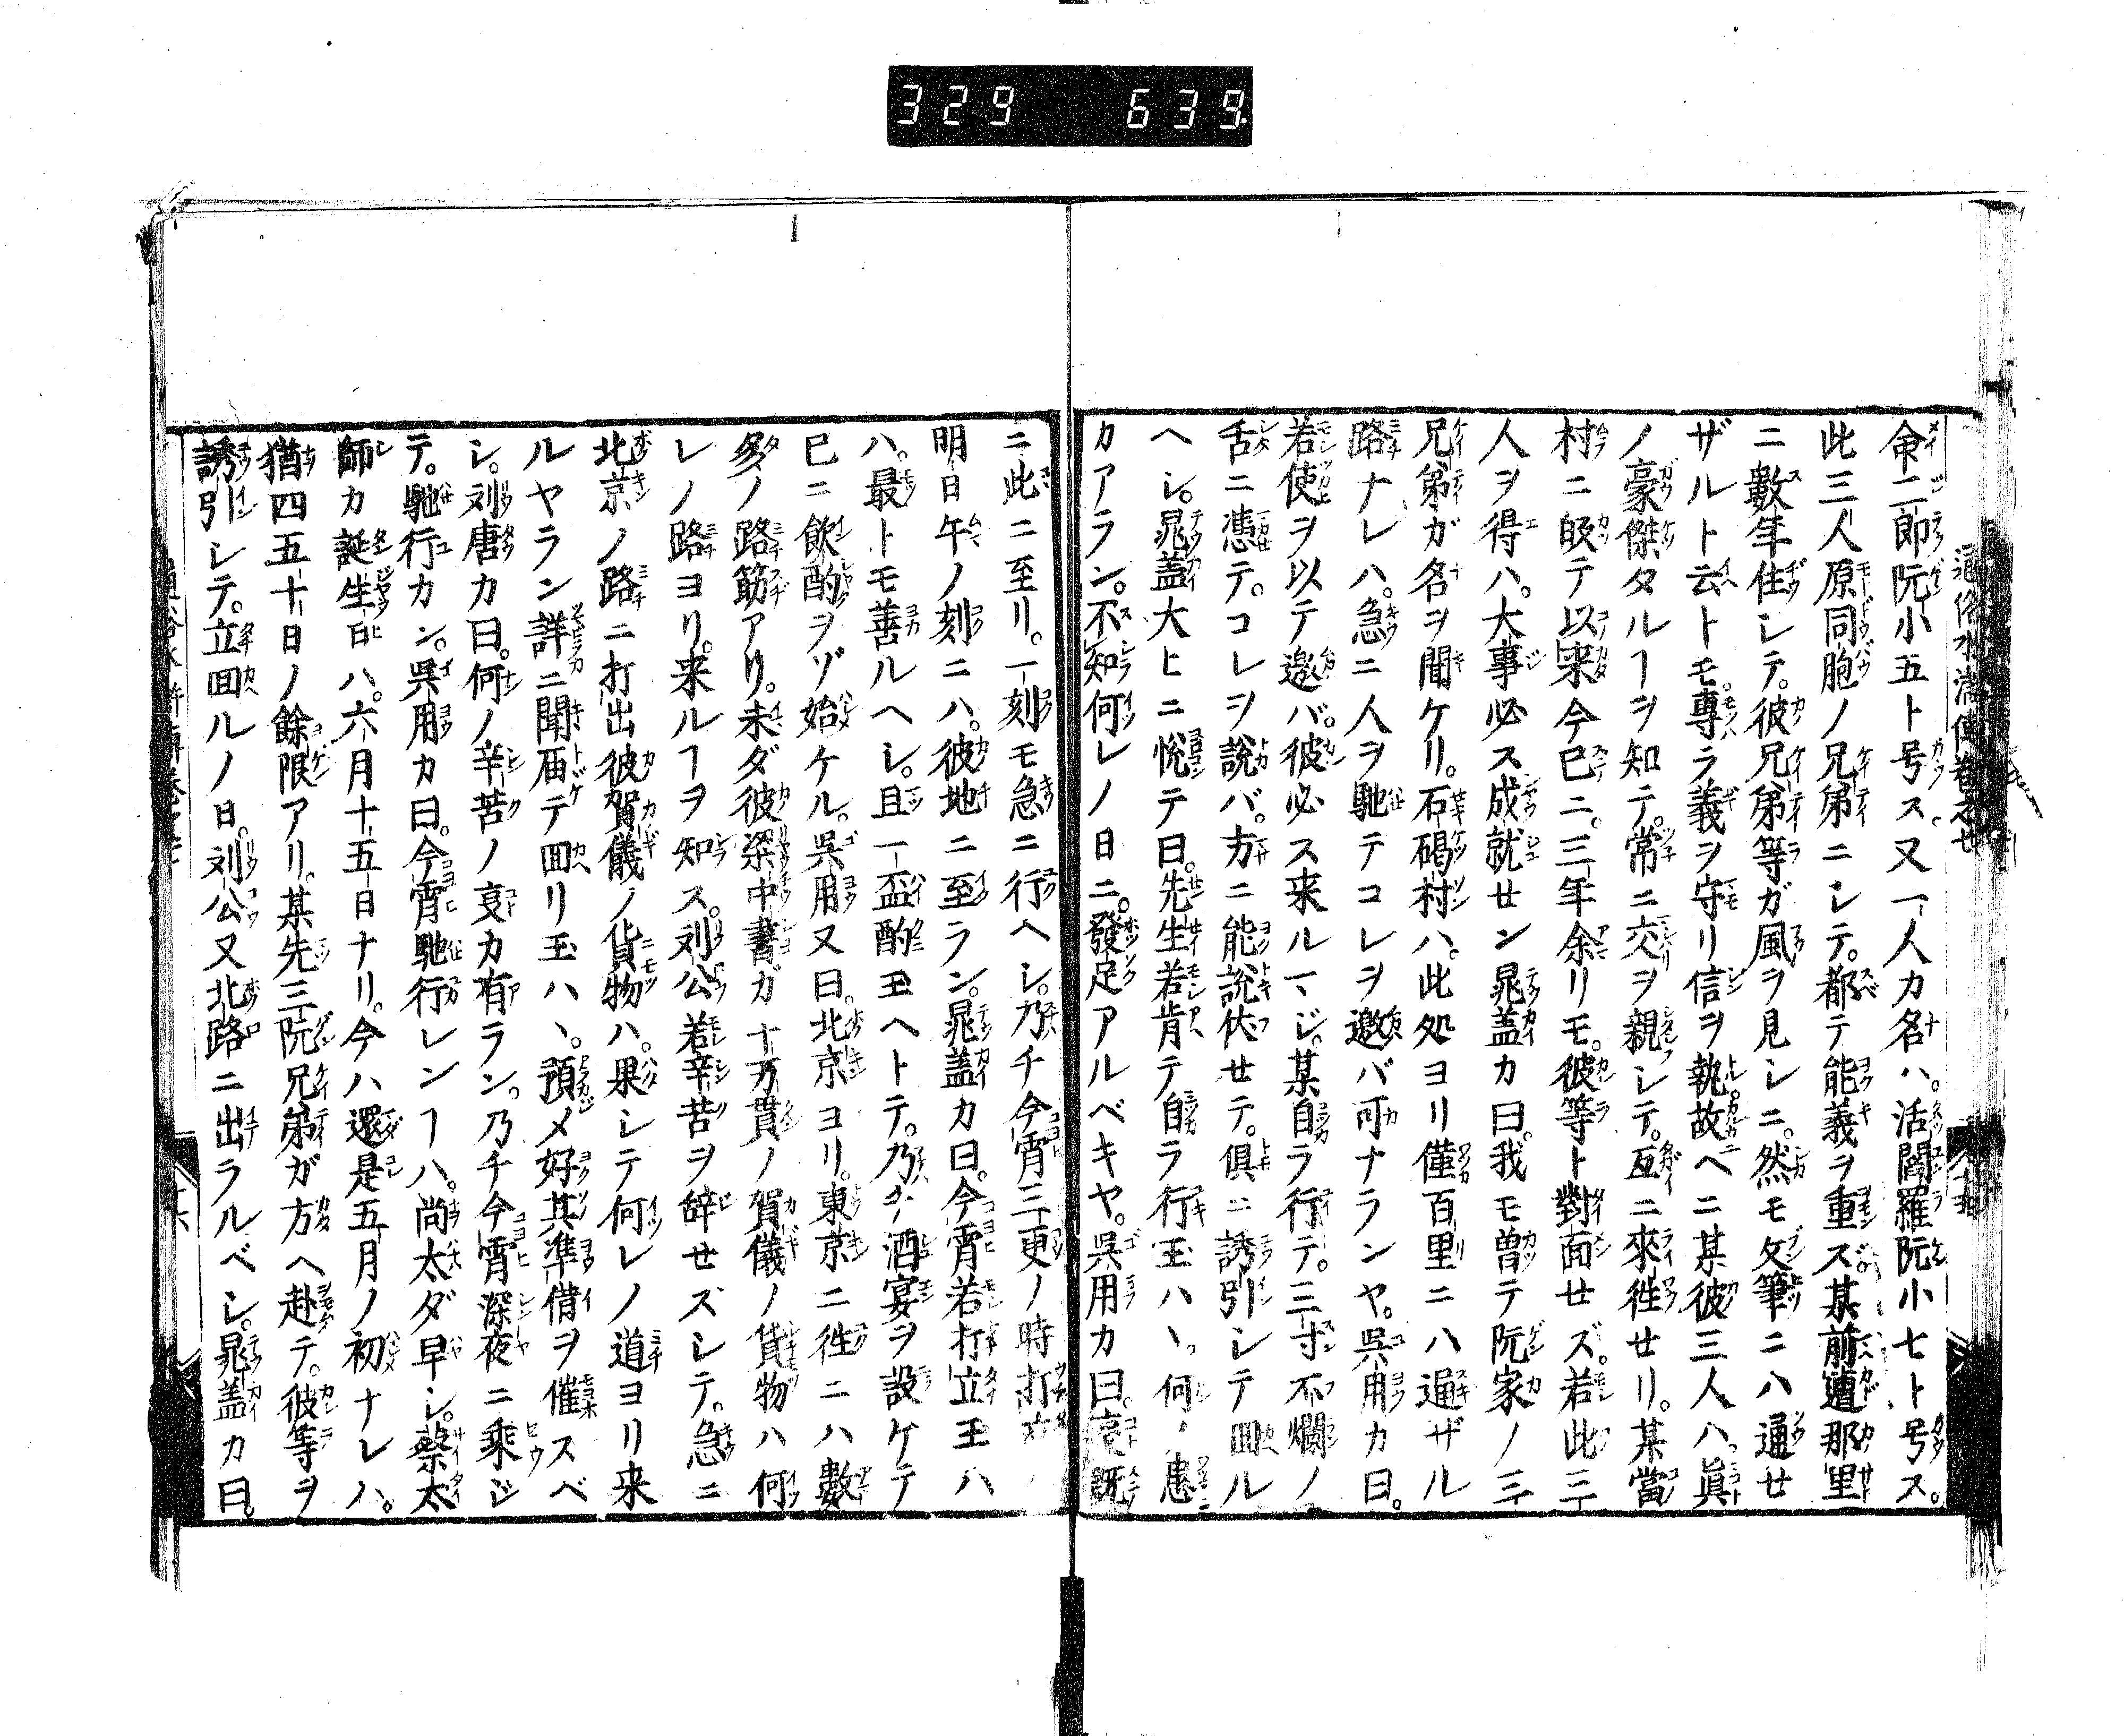 329 639
命二郎阮小五ト号ス。又一人カ名ハ。活閻羅阮小七ト号ス。
此三人原同胞ノ兄弟ニシテ。都テ能義ヲ重ズ。某前邉那里
ニ數年住シテ。彼兄弟等ガ風ヲ見シニ。然モ文筆ニハ通セ
ザルト云トモ。專ラ義ヲ守リ信ヲ執。故ヘニ某彼三人ハ眞
ノ豪傑タルヿヲ知テ。常ニ交ヲ親シテ。互ニ來徃セリ。某當
村ニ皈テ以来今已ニ。三年余リモ。彼等ト對面セズ。若此三
人ヲ得ハ。大事必ス成就セン晁盖カ曰。我モ曽テ阮家ノ三
兄弟ガ名ヲ聞ケリ。石碣村ハ。此処ヨリ僅百里ニハ過ザル
路ナレハ。急ニ人ヲ馳テコレヲ邀バ可ナランヤ。呉用カ曰。
若使ヲ以テ邀バ。彼必ス来ルマジ。某自ラ行テ。三寸不爛ノ
舌ニ憑テ。コレヲ說バ。方ニ能説伏セテ。倶ニ誘引シテ囬ル
ヘシ。晁盖大ヒニ悅テ曰。先生若肯テ自ラ行玉ハヽ。何ノ患
カアラン。不知何レノ日ニ。發足アルベキヤ。呉用カ曰。亰既
ニ此ニ至リ。一刻モ急ニ行ヘシ。乃チ今宵三更ノ時打立
明日午ノ刻ニハ。彼地ニ至ラン。晁盖カ曰。今宵若打立玉ハ
ハ。最トモ善ルヘシ。且一盃酌玉ヘトテ。乃チ酒宴ヲ設ケテ
已ニ飲酌ヲゾ始ケル。呉用又曰。北京ヨリ。東京ニ徃ニハ數
多ノ路筋アリ。未ダ彼梁中書ガ十万貫ノ賀儀ノ貨物ハ何
レノ路ヨリ。来ルヿヲ知ス。刘公若辛苦ヲ辞セズシテ。急ニ
北京ノ路ニ打出彼賀儀ノ貨物ハ。果シテ何レノ道ヨリ来
ルヤラン詳ニ聞届テ囬リ玉ハヽ。預メ好其準備ヲ催スベ
シ。刘唐カ曰。何ノ辛苦ノ亰カ有ラン。乃チ今宵深夜ニ乘ジ
テ。馳行カン。呉用カ曰。今宵馳行レンヿハ。尚太ダ早シ。蔡太
師カ誕生日ハ。六月十五日ナリ。今ハ還是五月ノ初ナレハ。
猶四五十日ノ餘限アリ。某先三阮兄弟ガ方ヘ赴テ。彼等ヲ
誘引シテ。立囬ルノ日。刘公又北路ニ出ラルベシ。晁盖カ曰。